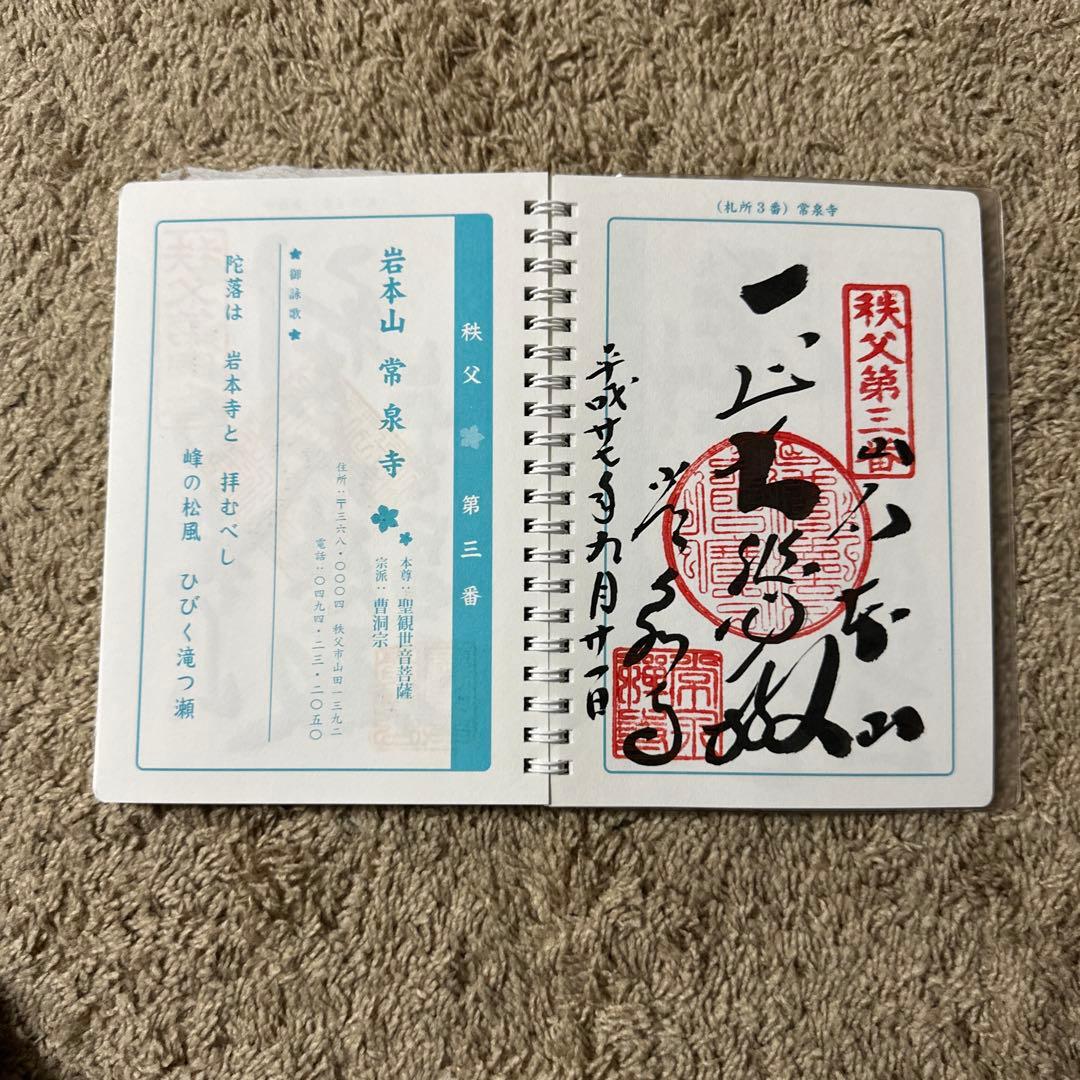 (札所3番) 常泉寺
秩父第三番
平成廿七年九月廿一日
常泉寺
秩父 第三番
岩本山 常泉寺
本尊:聖観世音菩薩
宗派:曹洞宗
住所:〒三六八・〇〇〇四 秩父市山田一三九二
電話:〇四九四・二三・二〇五〇
御詠歌
陀落は 岩本寺と 拝むべし
峰の松風 ひびく滝つ瀬